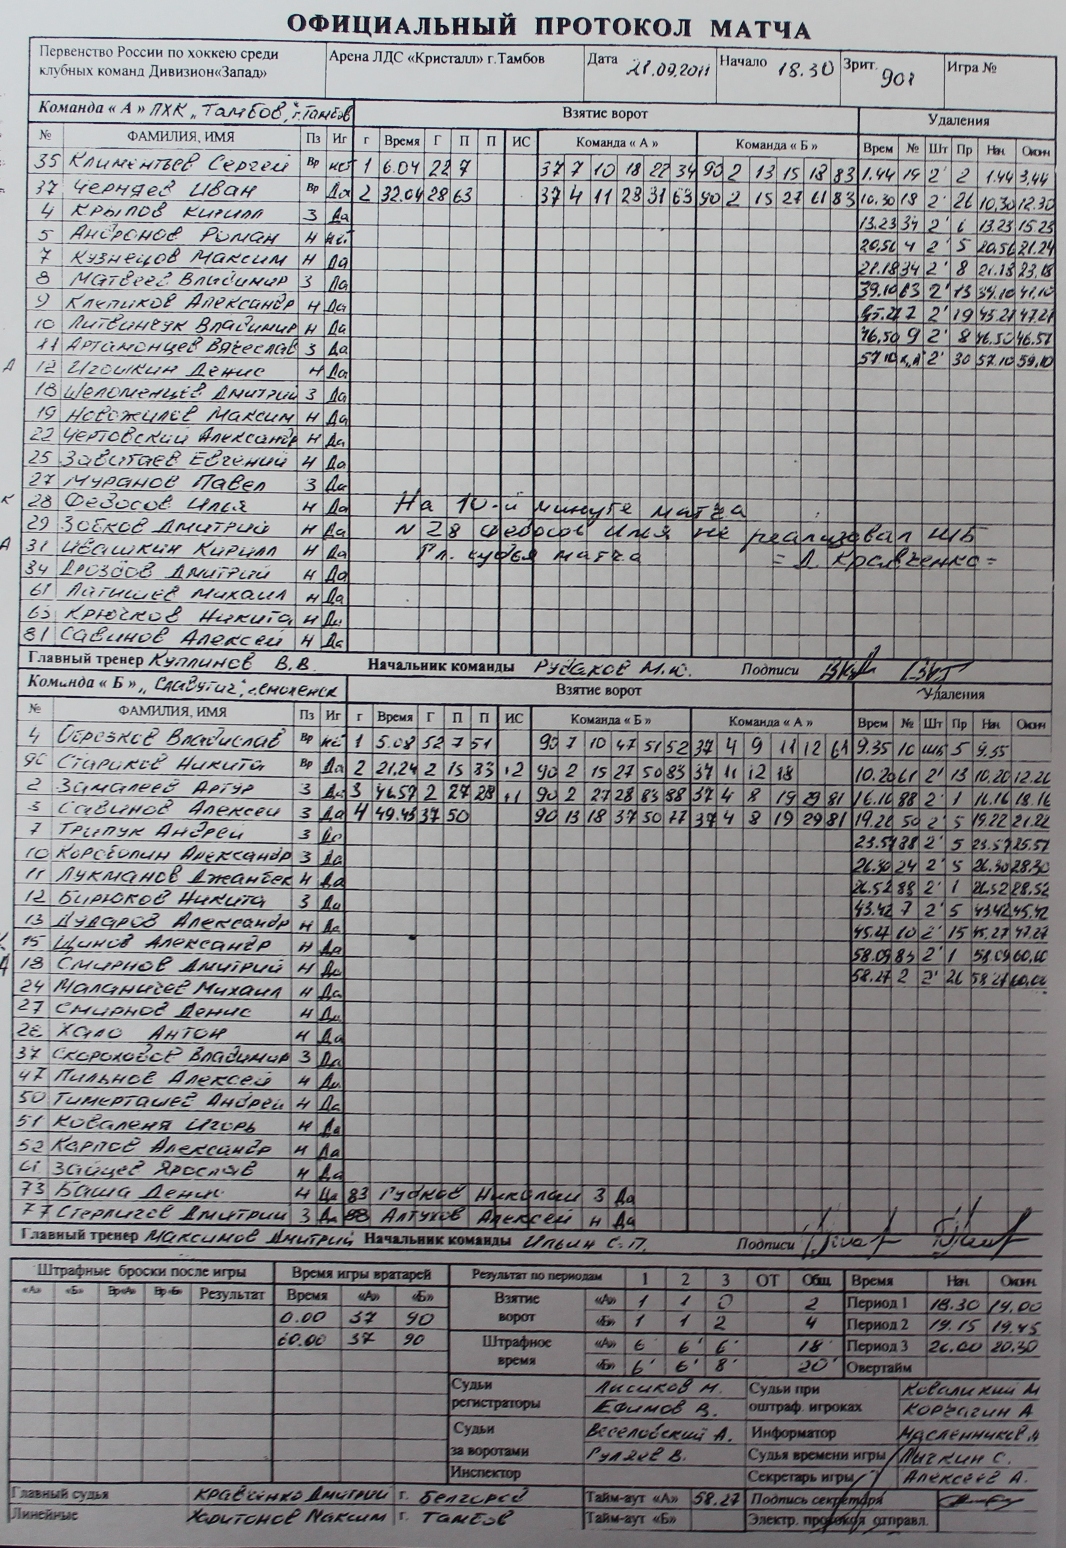 ОФИЦИАЛЬНЫЙ ПРОТОКОЛ МАТЧА
Первенство России по хоккею среди клубных команд Дивизион«Запад» Арена ЛДС «Кристалл» г.Тамбов Дата 21.09.2011 Начало 18.30 Зрит. 901 Игра №
Команда « А » ПХК „Тамбов," г. Тамбов Взятие ворот Удаления
№ ФАМИЛИЯ, ИМЯ Пз Иг г Время Г П П ИС Команда « А » Команда « Б » Врем № Шт Пр Нач. Оконч.
35 Климентьев Сергей Вр нет 1 6.04 22 7 37 7 10 18 22 34 90 2 13 15 18 83 1.44 19 2' 2 1.44 3.44
37 Черняев Иван Вр Да 2 32.04 28 63 37 4 11 28 31 63 90 2 15 27 61 83 10.30 18 2' 26 10.30 12.30
4 Крылов Кирилл З Да 13.23 34 2' 6 13.23 15.23
5 Андронов Роман Н нет 20.56 4 2' 5 20.56 21.24
7 Кузнецов Максим Н Да 21.18 34 2' 8 21.18 23.18
8 Матвеев Владимир З Да 39.10 63 2' 13 39.10 41.10
9 Клепиков Александр Н Да 45.27 7 2' 19 45.27 47.27
10 Литвинчук Владимир Н Да 46.50 9 2' 8 46.50 46.57
11 Артамонцев Вячеслав З Да 57.10 к.„А" 2' 30 57.10 59.10
А 12 Игошкин Денис Н Да
18 Шеломенцев Дмитрий З Да
19 Новожилов Максим Н Да
22 Чертовский Александр Н Да
25 Завитаев Евгений Н Да
27 Муранов Павел З Да
К 28 Федосов Илья Н Да На 10-й минуте матча
29 Зобков Дмитрий Н Да N 28 Федосов Илья не реализовал ШБ
А 31 Ивашкин Кирилл Н Да Гл. судья матча = Д. Кравченко =
34 Дроздов Дмитрий Н Да
61 Латышев Михаил Н Да
63 Крючков Никита Н Да
81 Савинов Алексей Н Да
Главный тренер Куплинов В.В. Начальник команды Рудаков М.Ю. Подписи
Команда « Б » „Славутич" г.Смоленск Взятие ворот Удаления
№ ФАМИЛИЯ, ИМЯ Пз Иг г Время Г П П ИС Команда « Б » Команда « А » Врем № Шт Пр Нач. Оконч.
4 Обрезков Владислав Вр нет 1 5.08 52 7 51 90 7 10 47 51 52 37 4 9 11 12 61 9.35 10 ШБ 5 9.35
90 Стариков Никита Вр Да 2 21.24 2 15 83 +2 90 2 15 27 50 83 37 11 12 18 10.20 61 2' 13 10.20 12.20
2 Замалеев Артур З Да 3 46.57 2 27 28 +1 90 2 27 28 83 88 37 4 8 19 29 81 16.16 88 2' 1 16.16 18.16
3 Савинов Алексей З Да 4 49.43 37 50 90 13 18 37 50 77 37 4 8 19 29 81 19.22 50 2' 5 19.22 21.22
7 Трипук Андрей З Да 23.57 88 2' 5 23.57 25.57
10 Коростелин Александр З Да 26.30 24 2' 5 26.30 28.30
11 Лукманов Джанбек Н Да 26.52 88 2' 1 26.52 28.52
12 Бирюков Никита З Да 43.42 7 2' 5 43.42 45.42
13 Дударов Александр Н Да 45.27 10 2' 15 45.27 47.27
К 15 Щинов Александр Н Да 58.09 83 2' 1 58.09 60.00
А 18 Смирнов Дмитрий Н Да 58.27 2 2' 26 58.27 60.00
24 Маланичев Михаил Н Да
27 Смирнов Денис Н Да
28 Хало Антон Н Да
37 Скороходов Владимир З Да
47 Пильнов Алексей Н Да
50 Тимерташев Андрей Н Да
51 Коваленя Игорь Н Да
52 Карпов Александр Н Да
61 Зайцев Ярослав Н Да
73 Баша Денис Н Да 83 Рудков Николай З Да
77 Стерлигов Дмитрий З Да 88 Алтухов Алексей Н Да
Главный тренер Максимов Дмитрий Начальник команды Ильин С.П. Подписи
Штрафные броски после игры Время игры вратарей Результат по периодам 1 2 3 ОТ Общ Время Нач. Оконч.
«А» «Б» Вр«А» Вр«Б» Результат Время «А» «Б» Взятие ворот «А» 1 1 0 2 Период 1 18.30 19.00
0.00 37 90 «Б» 1 1 2 4 Период 2 19.15 19.45
60.00 37 90 Штрафное время «А» 6 6' 6' 18' Период 3 20.00 20.30
«Б» 6' 6' 8' 20' Овертайм
Судьи регистраторы Лысиков М. Судьи при оштраф. игроках Ковалицкий М
Ефимов В. Корчагин А
Судьи за воротами Веселовский А. Информатор Масленников А
Гуляев В. Судья времени игры Лычкин С.
Инспектор Секретарь игры Алексеев А.
Главный судья Кравченко Дмитрий г. Белгород Тайм-аут «А» 58.27 Подпись секретаря
Линейные Харитонов Максим г. Тамбов Тайм-аут «Б» Электр. протокол отправл.